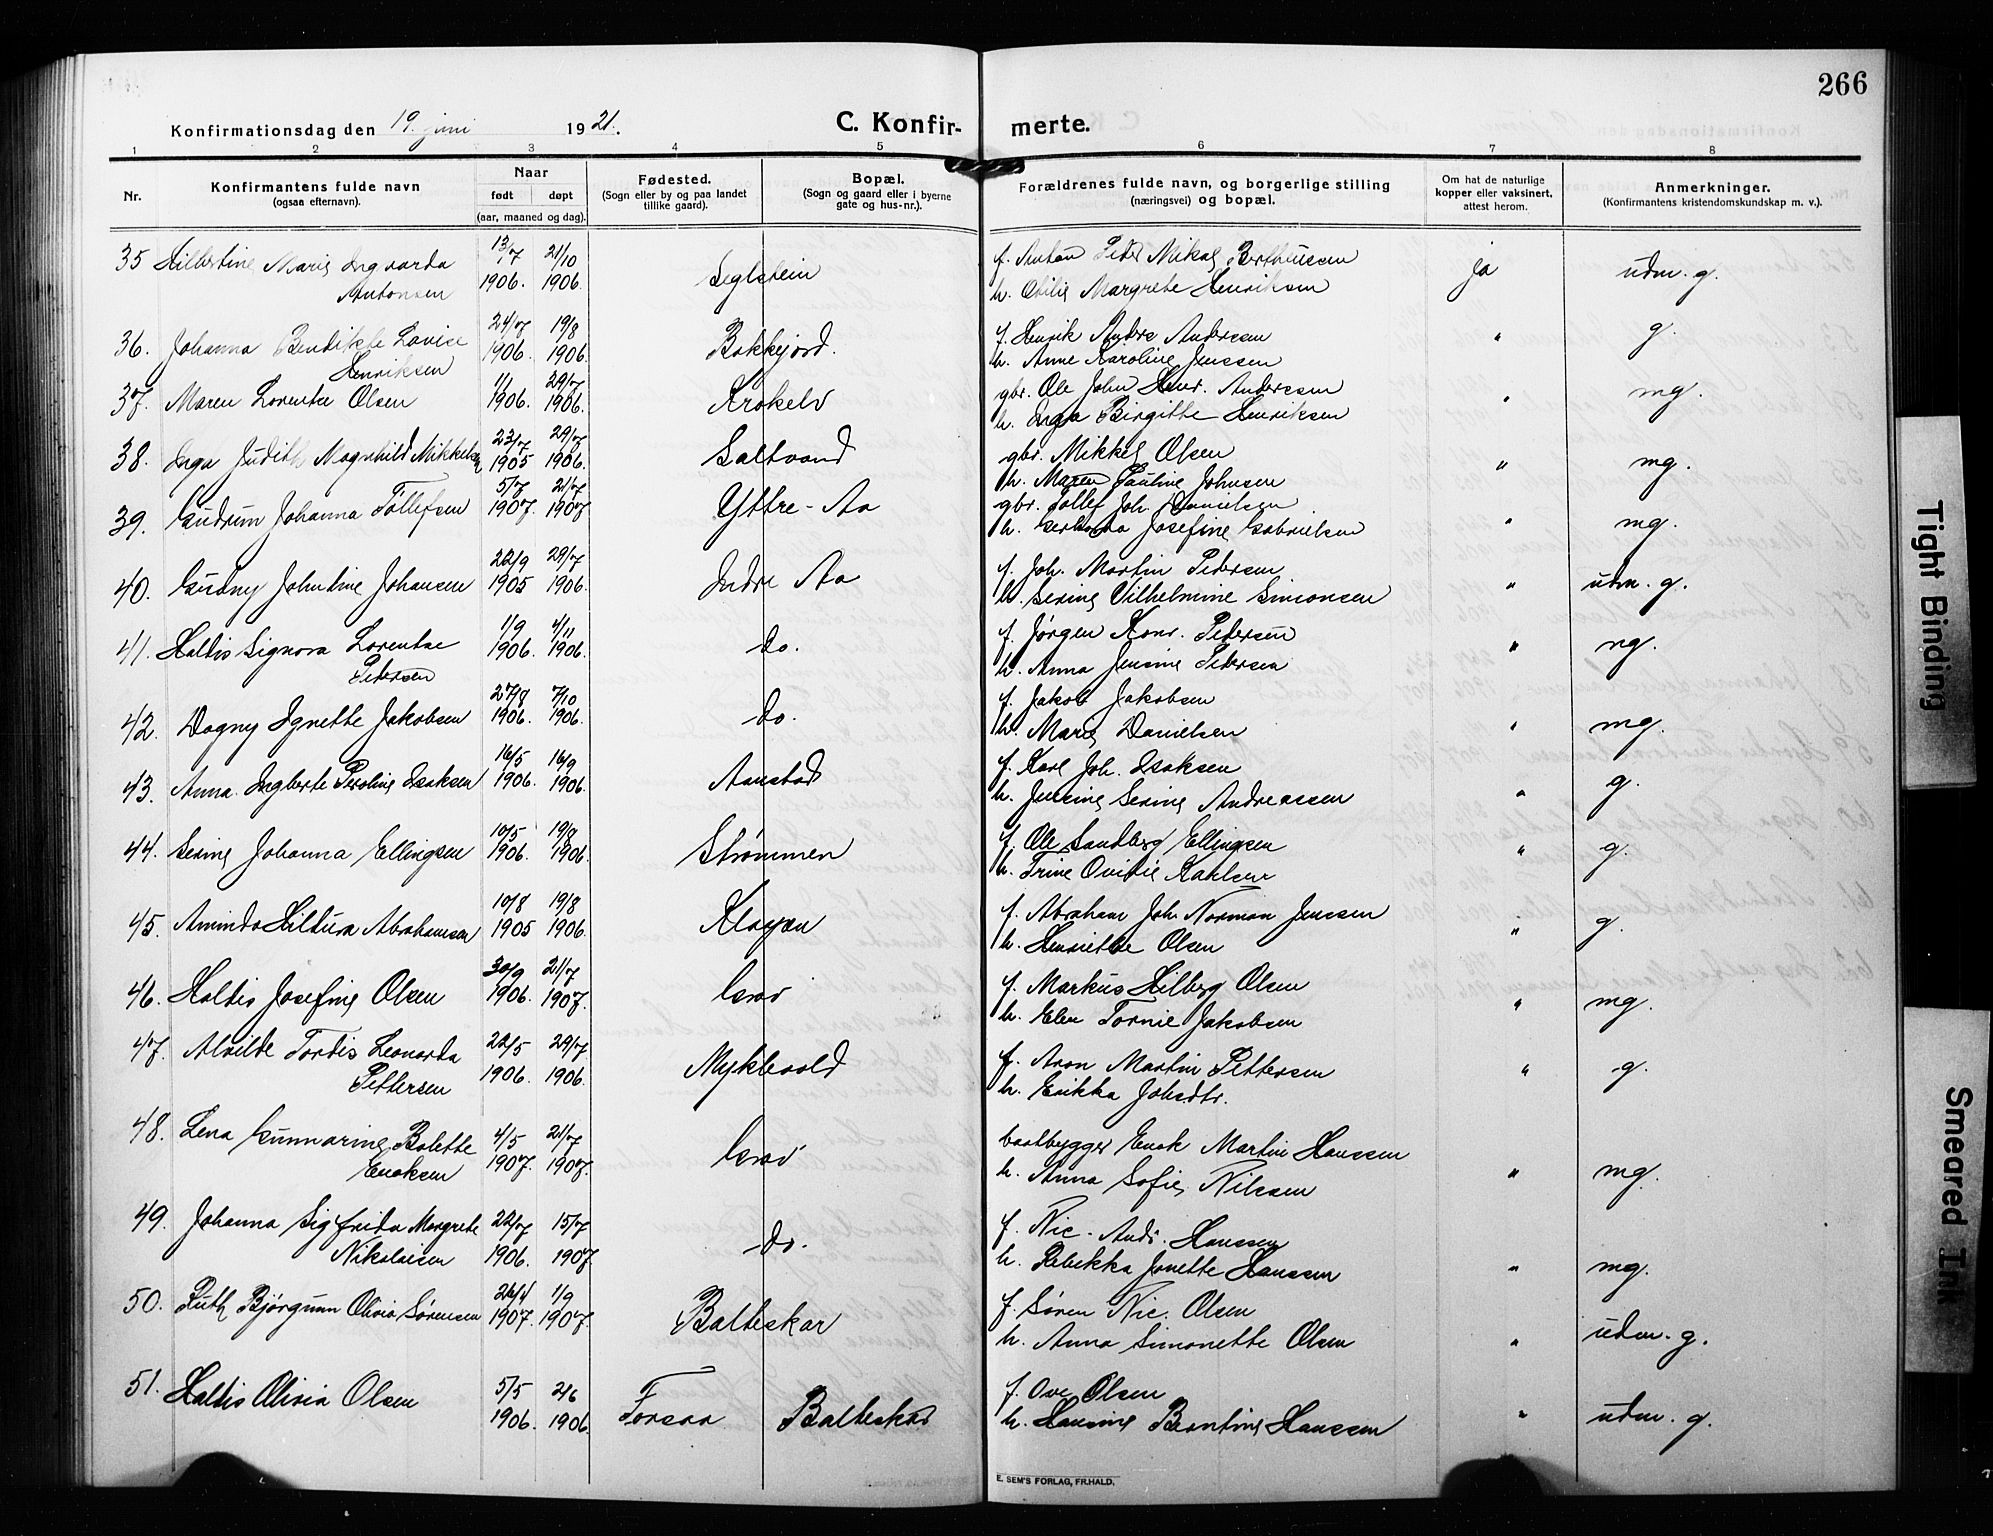 266
Konfirmationsdag den 19. juni 1921.
C. Konfir- merte.
1 2 3 4 5 6 7 8
Nr.
Konfirmantens fulde navn
(ogsaa efternavn).
Naar
født døpt
(aar, maaned og dag).
Fødested.
(Sogn eller by og paa landet
tillike gaard).
Bopæl.
(Sogn og gaard eller i byerne
gate og hus-nr.).
Forældrenes fulde navn, og borgerlige stilling
(næringsvei) og bopæl.
Om hat de naturlige
kopper eller vaksinert,
attest herom.
Anmerkninger.
(Konfirmantens kristendomskundskap m. v.).
35 Hilbertine Marie Ingvarda 13/7 21/10
Antonsen 1906. 1906. Leglstein
f. Anton Peder Mikal Bertheussen ja udm. g.
h. Otilie Margrete Henriksen
36. Johanna Bendikte Lovise 24/7 19/8
Henriksen 1906. 1906. Bakkejord.
f. Henrik Anders Andersen " g.
h. Anne Karoline Jenssen
37. Maren Lorentse Olsen 1/1 29/7
1906. 1906. Krokelv
gbr. Ole John Henr. Anderssen " mg.
h. Inga Birgitte Henriksen
38. Inga Judith Magnhild Mikkelsen 23/7 29/7
1905 1906. Saltvand
gbr. Mikkel Olsen " mg.
h. Maren Pauline Johnsen
39. Gudrun Johanna Tollefsen 5/7 21/7
1907. 1907. Yttre-Aa
gbr. Tollef Joh. Danielsen " mg.
h. Gerharda Josefine Gabrielsen
40. Gudny Johndine Johansen 22/9 29/7
1905 1906. Indre Aa
f. Joh. Martin Pedersen " udm. g.
h. Serine Vilhelmine Simonsen
41. Haldis Signora Lorentse 1/9 4/11
Pedersen 1906. 1906. do.
f. Jørgen Konr. Pedersen " ng.
h. Anna Jensine Pedersen
42. Dagny Agnette Jakobsen 27/8 7/10
1906. 1906. do.
f. Jakob Jakobsen " mg.
h. Marie Danielsen
43. Anna Ingberte Peroline Isaksen 16/5 16/9
1906. 1906. Aanstad
f. Karl Joh. Isaksen " g.
h. Jensine Serine Andreassen
44. Serine Johanna Ellingsen 10/5 19/8
1906. 1906. Strømmen
f. Ole Sandberg Ellingsen " g.
h. Trine Ovidie Karlsen
45. Aminda Hildura Abrahamsen 10/8 19/8
1905 1906. Kløven
f. Abraham Joh. Norman Jenssen " g.
h. Henriette Olsen
46. Haldis Josefine Olsen 30/9 21/7
1906. 1907. Grav
f. Markus Hilberg Olsen " mg.
h. Elen Tornie Jakobsen
47. Alvilde Tordis Leonarda 22/5 29/7
Pettersen 1906. 1906. Myklevold
f. Aron Martin Pettersen " g.
h. Erikka Johsdtr.
48. Lena Gunnarine Bolette 4/5 21/7
Enoksen 1907. 1907. Grav
baatbygger Enok Martin Hanssen
h. Anna Sofie Nilssen " mg.
49. Johanna Sigfrida Margrete 22/7 15/7
Nikolaisen 1906. 1907. do.
f. Nic. Andr. Hanssen
h. Rebekka Jonette Hanssen " mg.
50. Ruth Bjørgunn Olivia Sørensen 26/4 1/9
1907. 1907. Balteskar
f. Søren Nic. Olsen
h. Anna Simonette Olsen " udm. g.
51. Haldis Olivia Olsen 5/5 2/6
1906. 1906. Forsaa Balteskar
f. Ove Olsen
h. Hansine Berntine Hanssen " udm. g.
E. SEM'S FORLAG, FR.HALD.
Tight Binding
Smeared Ink